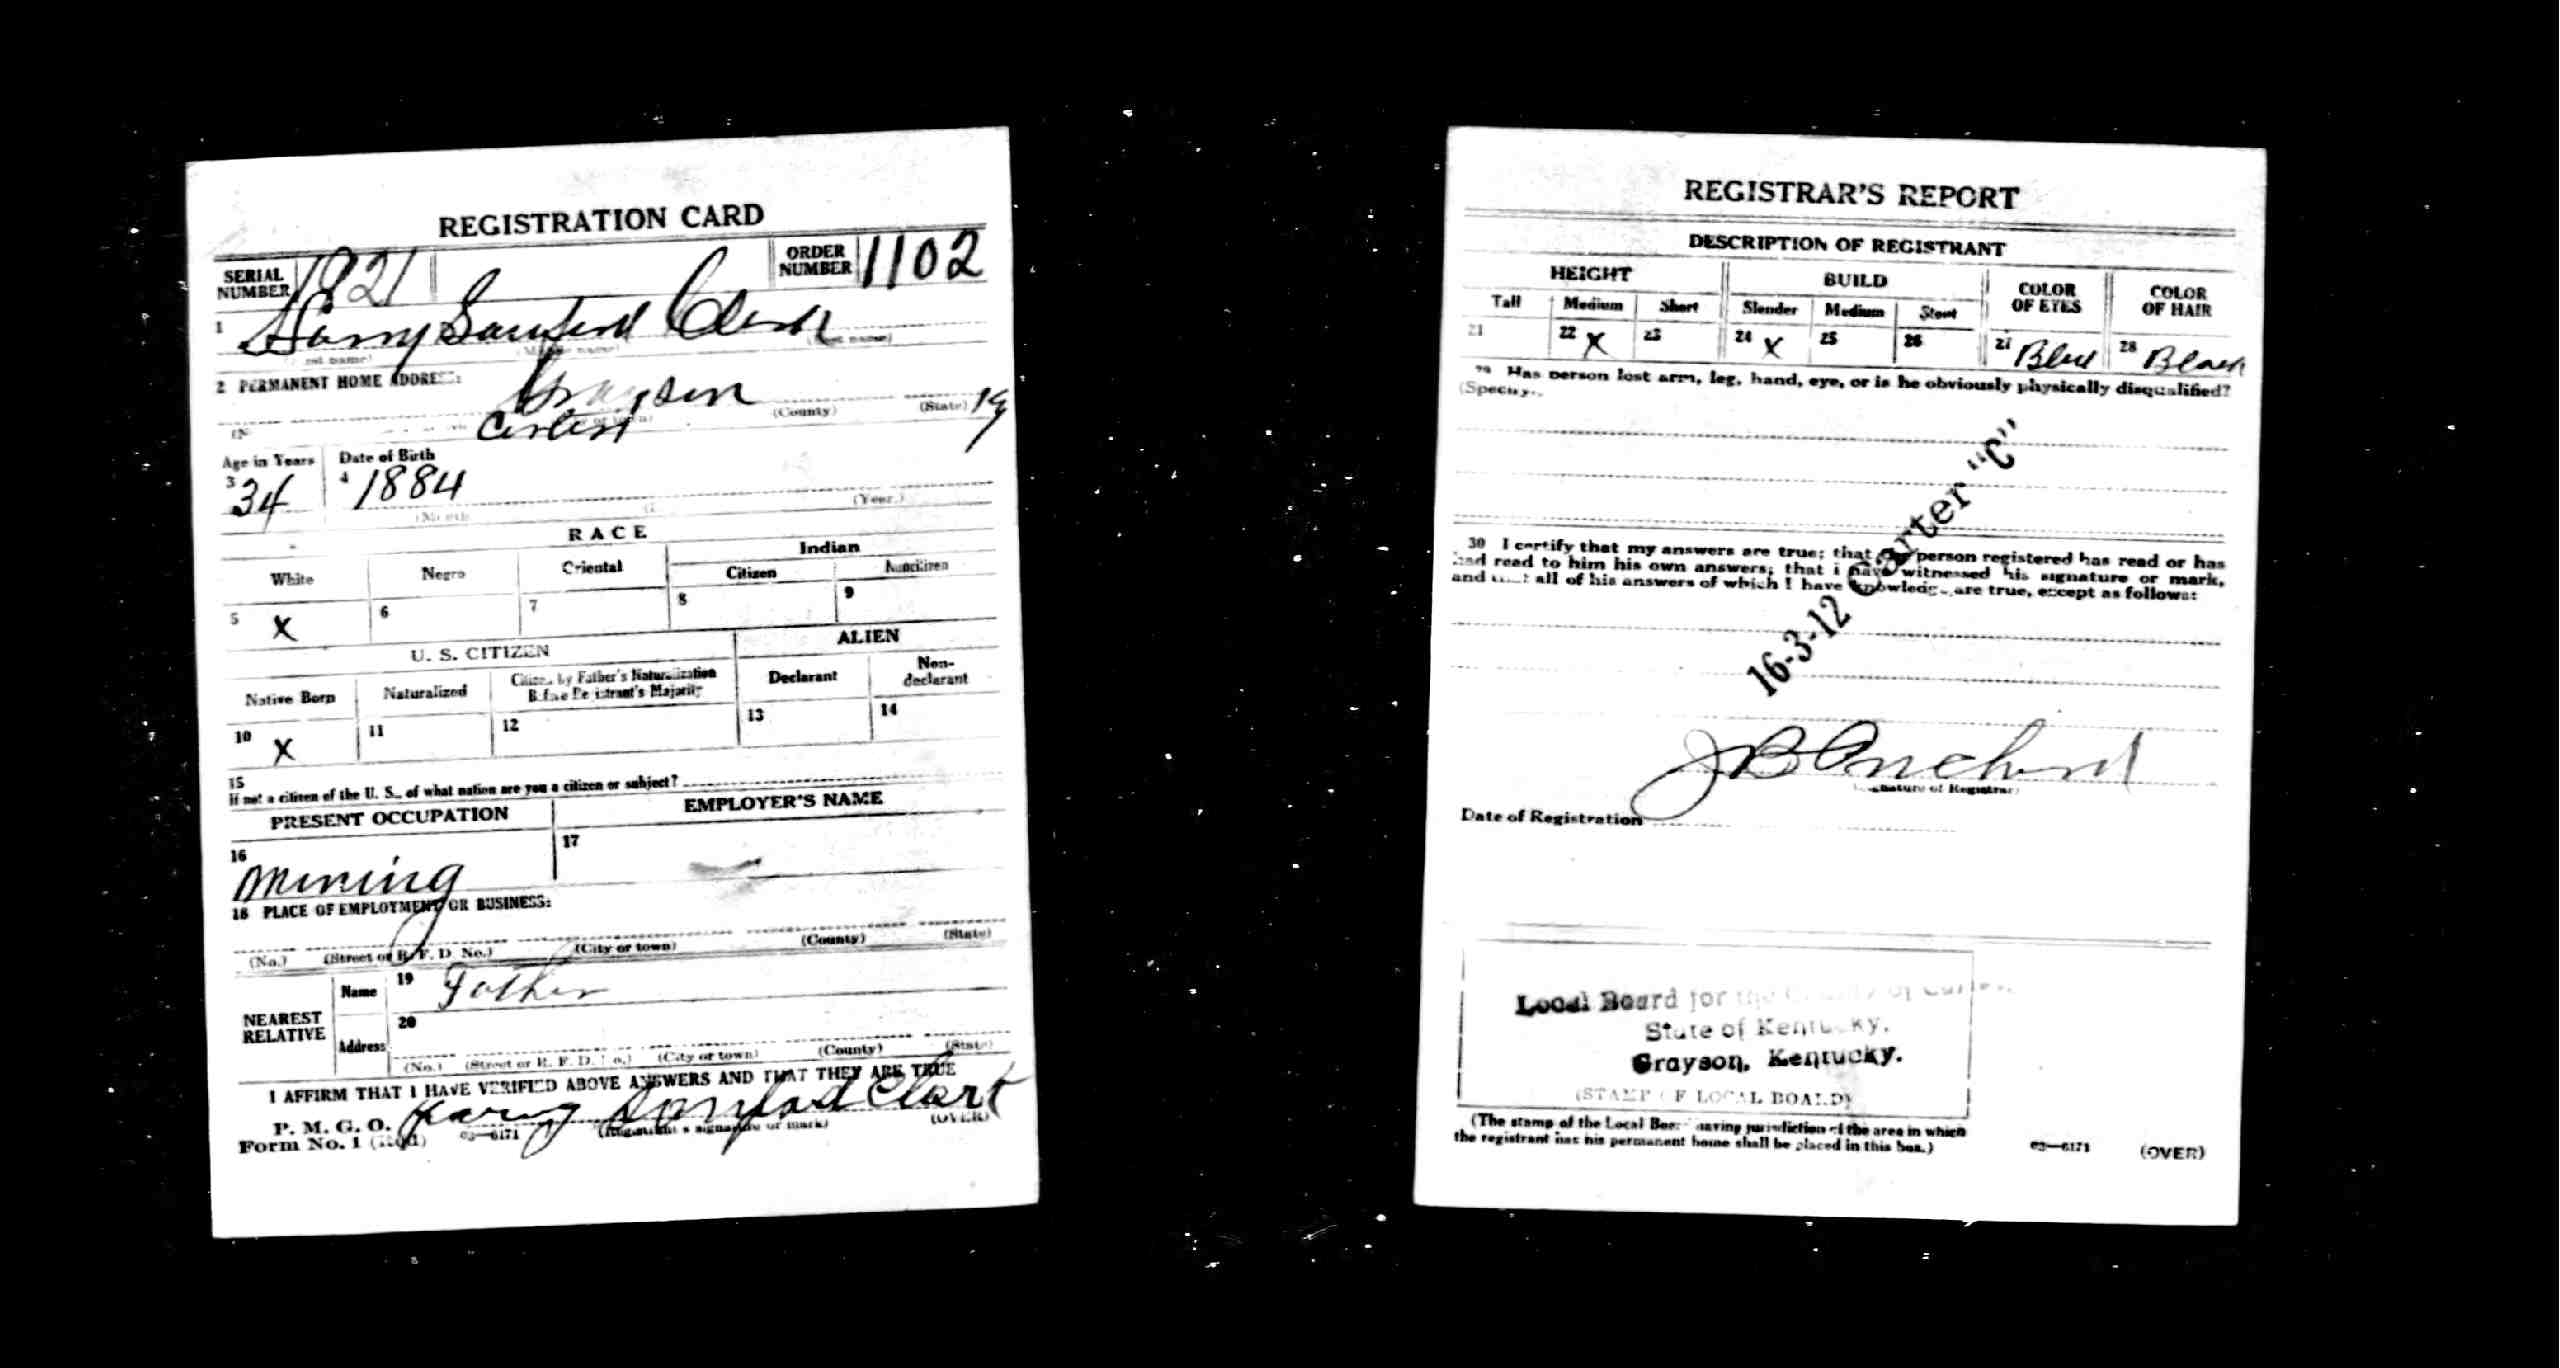 REGISTRATION CARD
SERIAL NUMBER 1821 ORDER NUMBER 1102
1 Harry Sanford Clark
(Middle name) (Last name)
2 PERMANENT HOME ADDRESS:
Grayson
(County) (State)
Carter Ky
Age in Years Date of Birth
3 34 4 1884
(Month) (Year.)
RACE
White Negro Oriental Indian
Citizen Noncitizen
5 X 6 7 8 9
U. S. CITIZEN ALIEN
Native Born Naturalized Citizen by Father's Naturalization Before Registrant's Majority Declarant Non-declarant
10 X 11 12 13 14
15
If not a citizen of the U. S., of what nation are you a citizen or subject?
PRESENT OCCUPATION EMPLOYER'S NAME
16 Mining 17
18 PLACE OF EMPLOYMENT OR BUSINESS:
(No.) (Street or R. F. D. No.) (City or town) (County) (State)
NEAREST RELATIVE Name 19 Father
Address 20
(No.) (Street or R. F. D. No.) (City or town) (County) (State)
I AFFIRM THAT I HAVE VERIFIED ABOVE ANSWERS AND THAT THEY ARE TRUE
P. M. G. O.
Form No. 1 (Red) 03—6171 Harry Sanford Clark (Registrant's signature or mark) (OVER)
REGISTRAR'S REPORT
DESCRIPTION OF REGISTRANT
HEIGHT BUILD COLOR OF EYES COLOR OF HAIR
Tall Medium Short Slender Medium Stout
21 22 X 23 24 X 25 26 27 Blue 28 Black
29 Has person lost arm, leg, hand, eye, or is he obviously physically disqualified?
(Specify.)
30 I certify that my answers are true; that the person registered has read or has
had read to him his own answers; that I have witnessed his signature or mark,
and that all of his answers of which I have knowledge are true, except as follows:
16-3-12 Carter "C"
J B
(Signature of Registrar)
Date of Registration
Local Board for the County of Carter,
State of Kentucky.
Grayson, Kentucky.
(STAMP OF LOCAL BOARD)
(The stamp of the Local Board having jurisdiction of the area in which
the registrant has his permanent home shall be placed in this box.)
03—6171 (OVER)